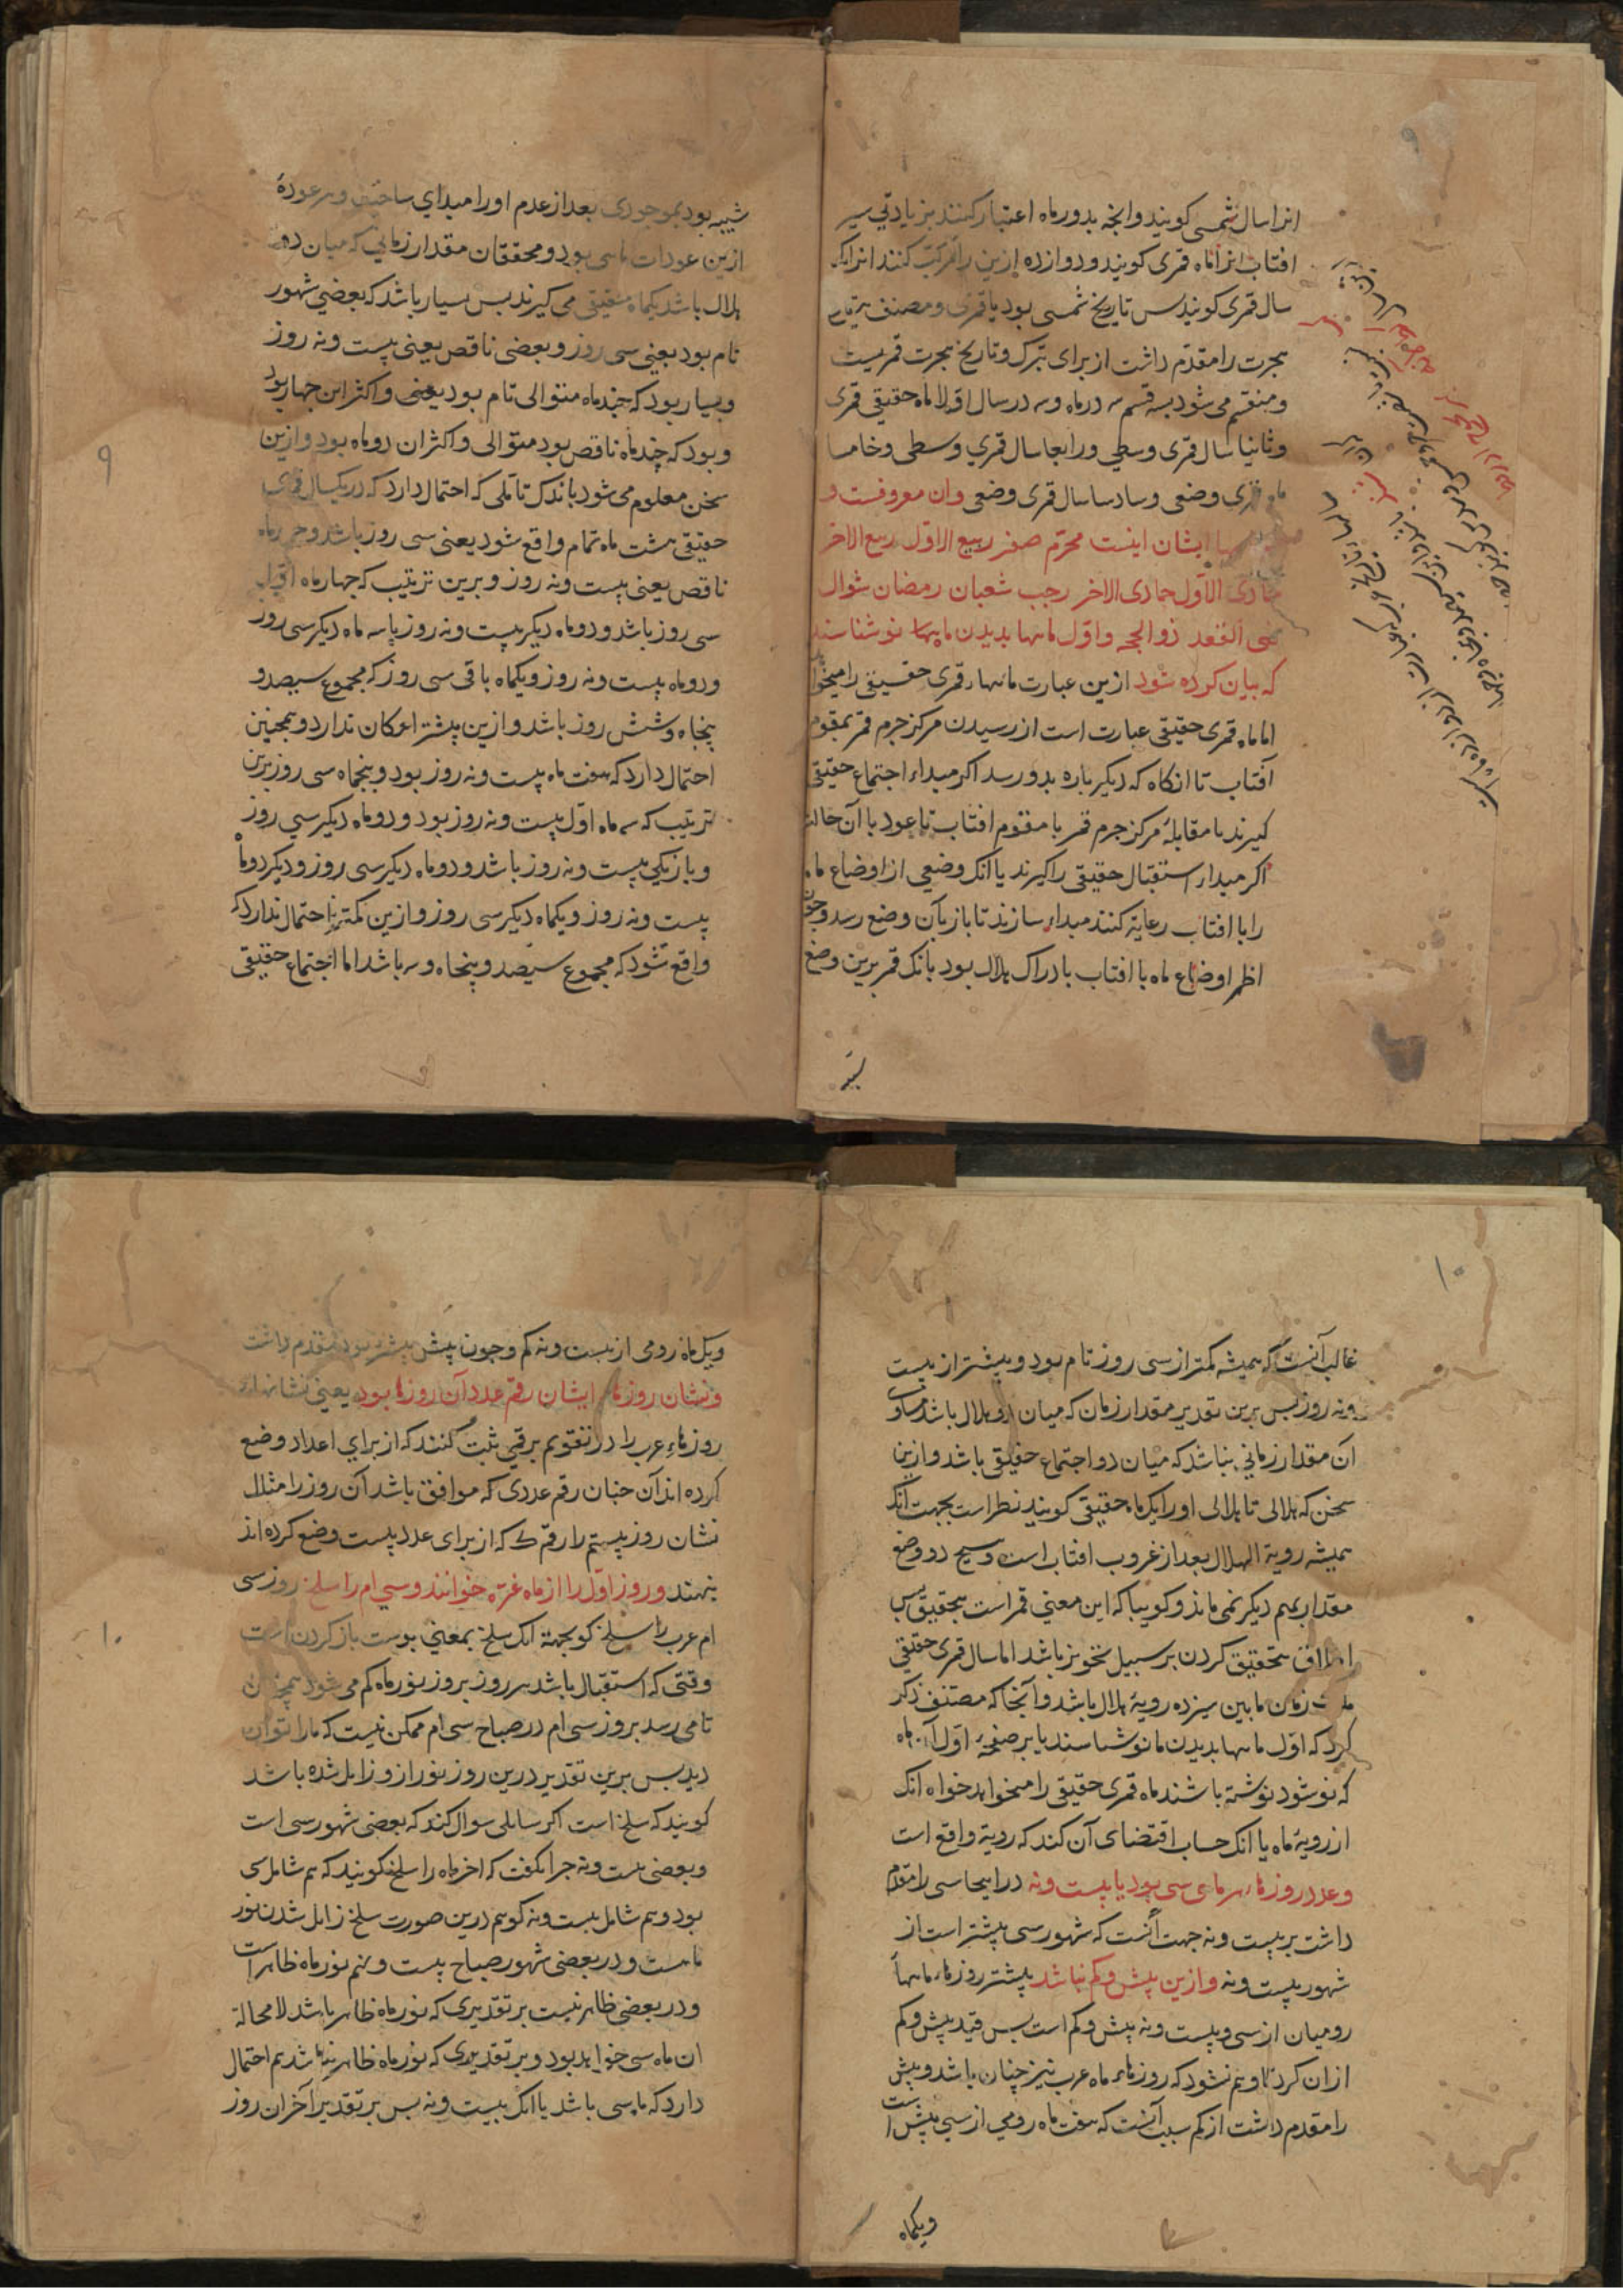 انرا سال شمسی کویند وانچه بدور ماه اعتبار کنند بزیادتی سیر
افتاب انرا ماه قمری کویند ودوازده ازین را مرکب کنند انرا یک
سال قمری کویند بس تاریخ شمسی بود یا قمری ومصنف
هجرت را مقدم داشت از برای تبرک وتاریخ هجرت قمریست
ومنقسم می شود بسه قسم سه در ماه وسه در سال اولا ماه حقیقی قمری
وثانیا سال قمری وسطی ورابعا سال قمری وسطی وخامسا
ماه قمری وضعی وسادسا سال قمری وضعی وان معروفست و
ایشان اینست محرم صفر ربیع الاول ربیع الاخر
جمادی الاول جمادی الاخر رجب شعبان رمضان شوال
ذی القعد ذو الحجه واول ماهها بدیدن ماه نو شناسند
که بیان کرده شود ازین عبارت ماهها قمری حقیقی را میخواهد
اما ماه قمری حقیقی عبارت است از رسیدن مرکز جرم قمر بمقوم
آفتاب تا انکاه که دیکر باره بدو رسد اکر مبداء اجتماع حقیقی
کیرند با مقابله مرکز جرم قمر با مقوم افتاب تا عود با آن حالت
اکر مبداء استقبال حقیقی را کیرند یا انک وضعی از اوضاع ماه
را با افتاب رعایة کنند مبداء سازند تا باز بآن وضع رسد وچون
اظهر اوضاع ماه با افتاب بادراک هلال بود بانک قمر برین وضع
شبیه
شبیه بود بموجودی بعد از عدم او را مبداء ساختند وهر عودهٔ
ازین عودات ماهی بود ومحققان مقدار زمانی که میان دو
هلال باشد یکماه حقیقی می کیرند بس بسیار باشد که بعضی شهور
تام بود یعنی سی روز وبعضی ناقص یعنی بیست ونه روز
وبسیار بود که چند ماه متوالی تام بود یعنی واکثر این چهار بود
وبود که چند ماه ناقص بود متوالی واکثر ان دو ماه بود وازین
سخن معلوم می شود باندک تاملی که احتمال دارد که در یکسال قمری
حقیقی هشت ماه تمام واقع شود یعنی سی روز باشد وچهار ماه
ناقص یعنی بیست ونه روز وبرین ترتیب که چهار ماه اول
سی روز باشد ودو ماه دیکر بیست ونه روز باسه ماه دیکر سی روز
ودو ماه بیست ونه روز ویکماه باقی سی روز که مجموع سیصد و
پنجاه وشش روز باشد وازین پیشتر امکان ندارد وهمچنین
احتمال دارد که هفت ماه بیست ونه روز بود وپنجماه سی روز برین
ترتیب که سه ماه اول بیست ونه روز بود ودو ماه دیکر سی روز
وباز یکی بیست ونه روز باشد ودو ماه دیکر سی روز ودیکر دو ماه
بیست ونه روز ویکماه دیکر سی روز وازین کمتر احتمال ندارد که
واقع شود که مجموع سیصد وپنجاه وسه باشد اما اجتماع حقیقی
۹
۱۰
غالب آنست که همیشه کمتر از سی روز تام بود وبیشتر از بیست
ونه روز بس برین تقدیر مقدار زمان که میان دو هلال باشد مساوی
آن مقدار زمانی نباشد که میان دو اجتماع حقیقی باشد وازین
سخن که هلالی تا هلالی او را یک ماه حقیقی کویند نظر است بجهت انک
همیشه رویة الهلال بعد از غروب افتاب است وهیچ دو وضع
مقدار بهم دیکر نمی ماند وکوییا که این معنی قمر است بتحقیق بس
اطلاق تحقیق کردن بر سبیل تجویز باشد اما سال قمری حقیقی
زمان ما بین سیزده رویة هلال باشد وآنجا که مصنف ذکر
کرد که اول ماهها بدیدن ماه نو شناسند یا بر صفحهٔ اول آن ماه
که نو شود نوشته باشند ماه قمری حقیقی را میخواهد خواه انک
از رویة ماه یا انک حساب اقتضای آن کند که رویة واقع است
وعدد روزهاء هر ماهی سی بود یا بیست ونه در اینجا سی را مقدم
داشت بر بیست ونه جهت آنست که شهور سی پیشتر است از
شهور بیست ونه وازین بیش وکم نباشد بیشتر روزهاء ماهها
رومیان از سی وبیست ونه بیش وکم است بس قید بیش وکم
از ان کرد تا وهم نشود که روزهاء ماه عرب نیز چنان باشد وبیش
را مقدم داشت از کم سبب آنست که هفت ماه رومی از سی بیش است
ویکماه
ویک ماه رومی از بیست ونه کم وچون بیش بیشتر بود مقدم داشت
ونشان روزهاء ایشان رقم عدد آن روزها بود یعنی نشانهاء
روزهاء عرب را در تقویم برقمی ثبت کنند که از برای اعداد وضع
کرده اند آن چنان رقم عددی که موافق باشد آن روز را مثلا
نشان روز بیستم را رقم ک که از برای عدد بیست وضع کرده اند
بنهند وروز اول را از ماه غره خوانند وسی ام را سلخ روز سی
ام عرب را سلخ کو بجهة انک سلخ بمعنی بوست باز کردن است
وقتی که استقبال باشد هر روز بروز نور ماه کم می شود همچنان
تا می رسد بروز سی ام در صباح سی ام ممکن نیست که ماه را توان
دید بس برین تقدیر درین روز نور از وزایل شده باشد
کویند که سلخ است اکر سایلی سوال کند که بعضی شهور سی است
وبعضی بیست ونه چرا نکفت که اخر ماه را سلخ کویند که هم شامل سی
بود وهم شامل بیست ونه کوییم درین صورت سلخ زایل شدن نور
ماست ودر بعضی شهور صباح بیست ونهم نور ماه ظاهر است
ودر بعضی ظاهر نیست بر تقدیری که نور ماه ظاهر باشد لا محالة
ان ماه سی خواهد بود وبر تقدیری که نور ماه ظاهر نباشد هم احتمال
دارد که ماه سی باشد یا انک بیست ونه بس بر تقدیر آخر ان روز
۱۰